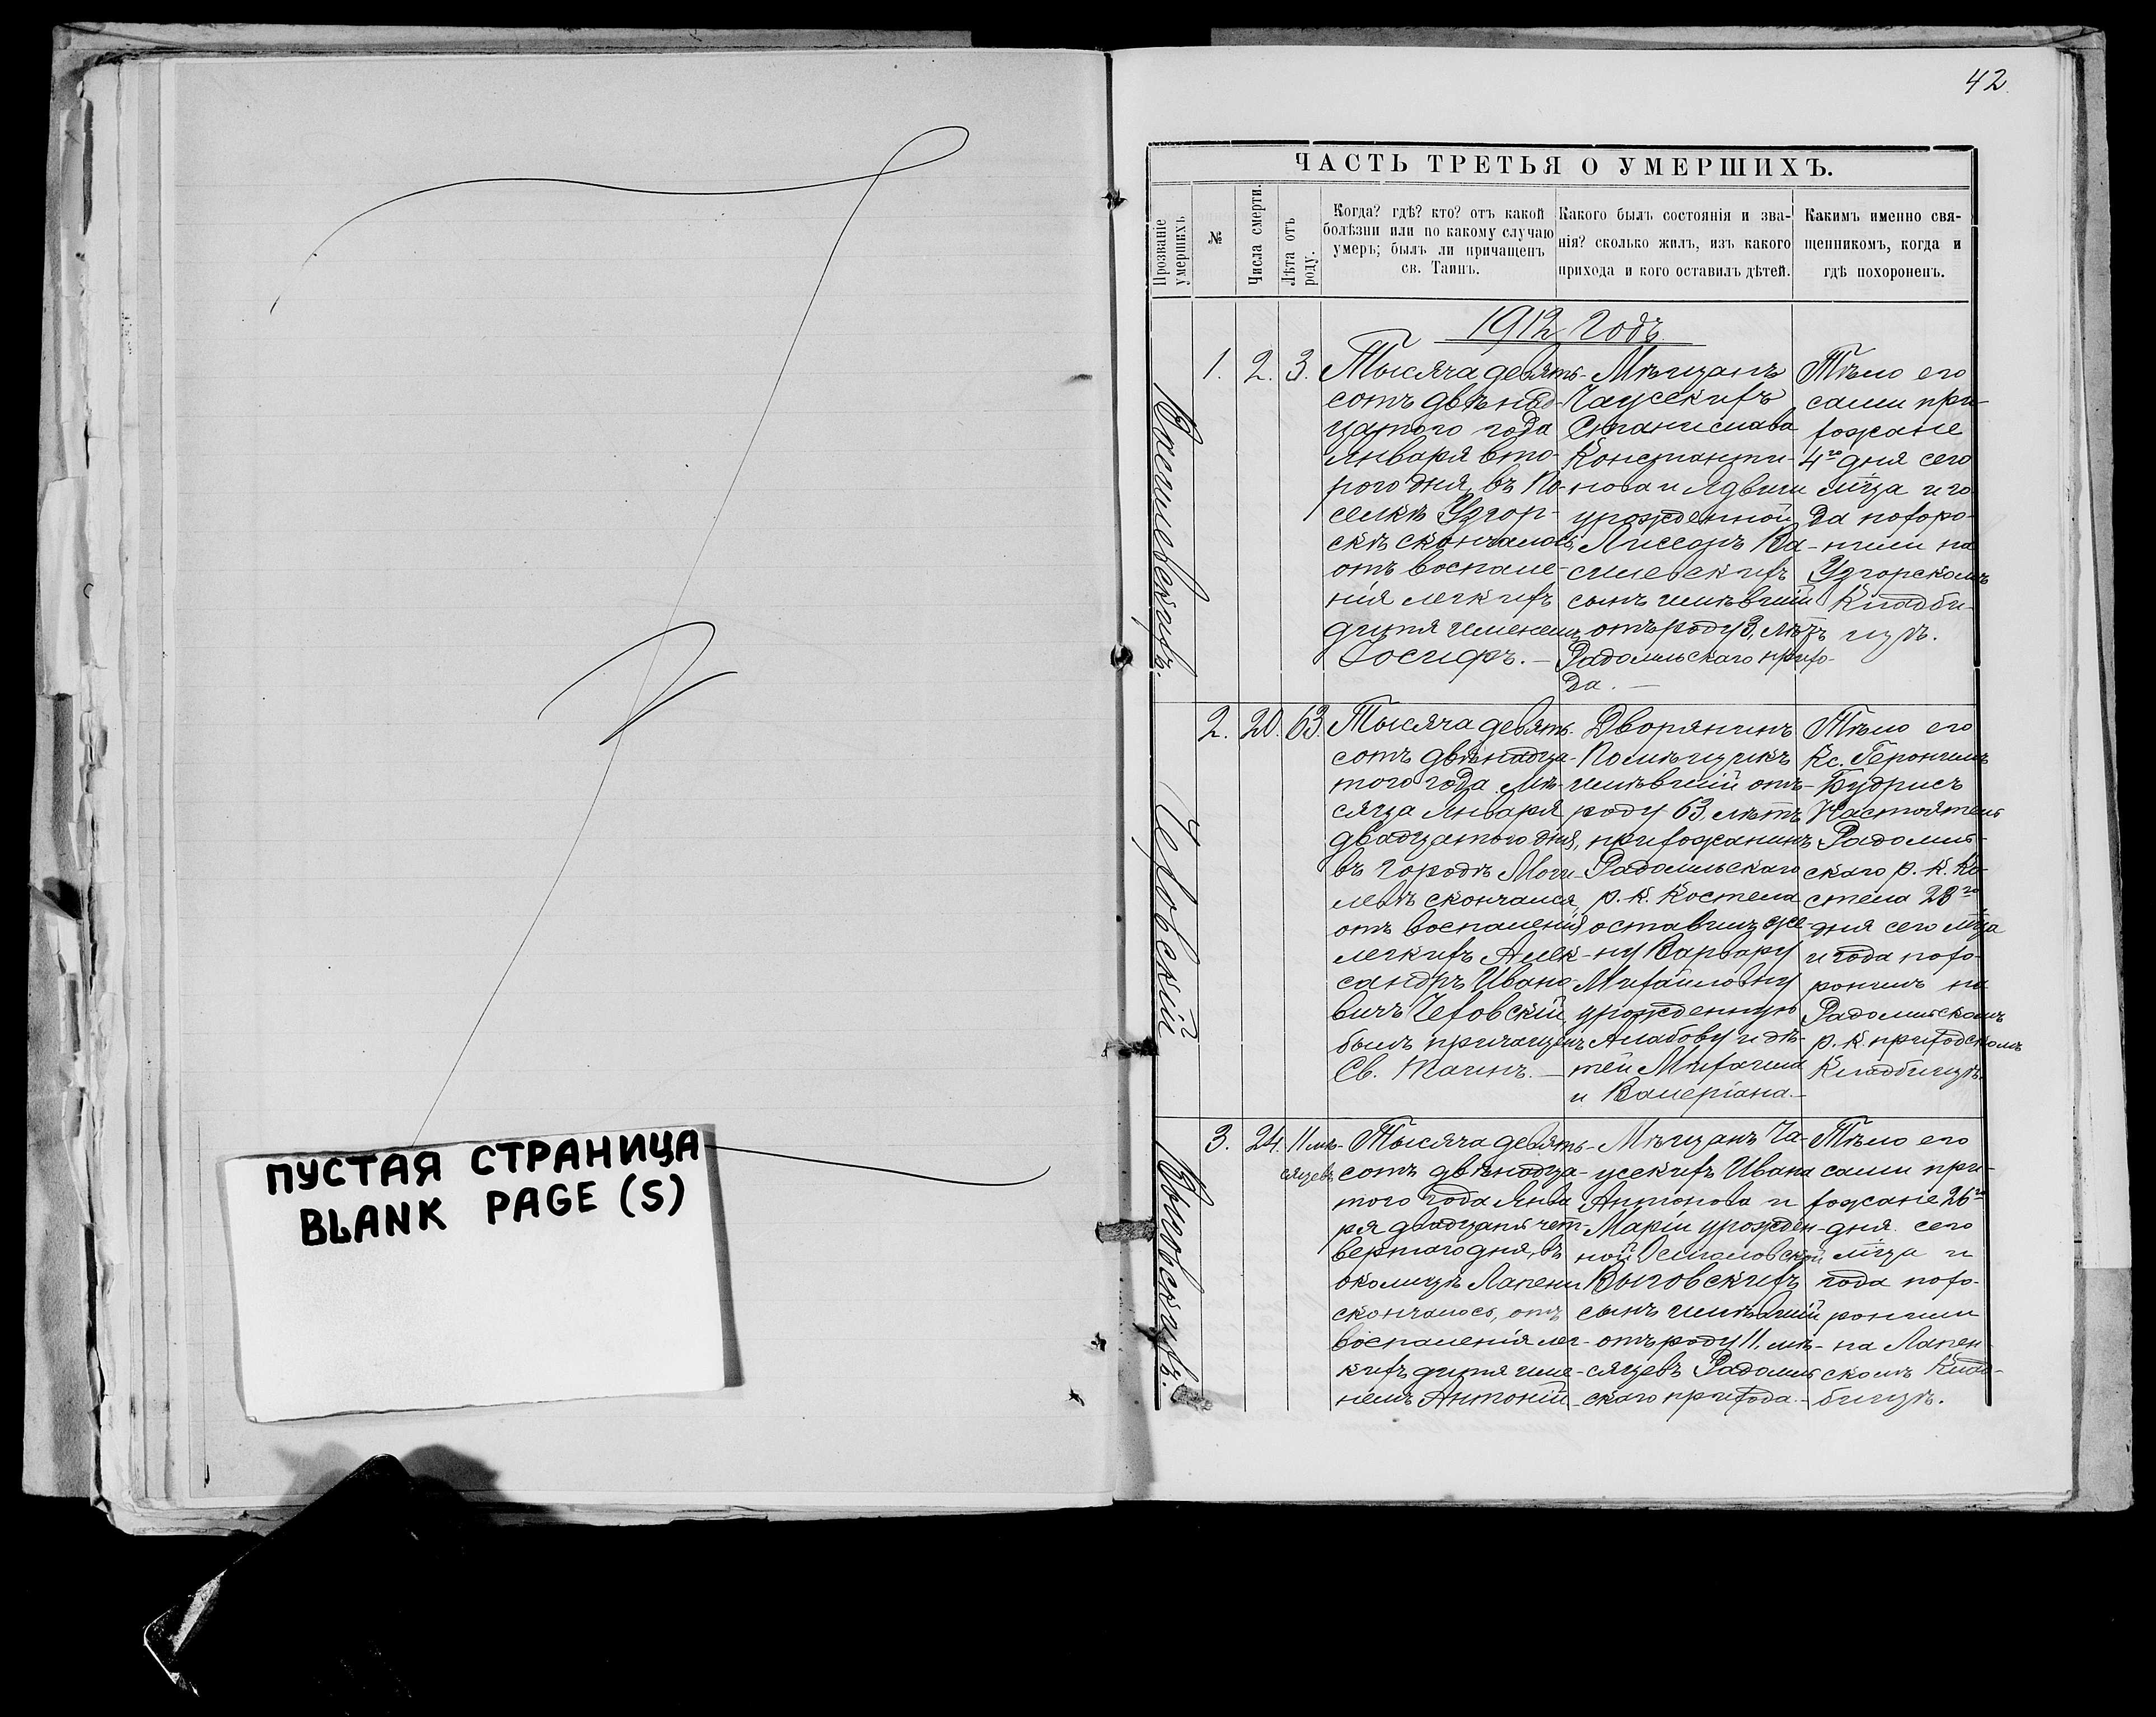 ПУСТАЯ СТРАНИЦА
BLANK PAGE (S)
42
ЧАСТЬ ТРЕТЬЯ О УМЕРШИХЪ.
Прозваніе
умершихъ
№
Числа смерти.
Лѣта отъ
роду.
Когда? гдѣ? кто? отъ какой
болѣзни или по какому случаю
умеръ; былъ ли причащенъ
св. Таинъ.
Какого былъ состоянія и зва-
нія? сколько жилъ, изъ какого
прихода и кого оставилъ дѣтей.
Какимъ именно свя-
щенникомъ, когда и
гдѣ похороненъ.
1912 Годъ
Василевскихъ.
1.
2.
3.
Тысяча девять-
сотъ двѣнад-
цатого года
Января вто-
рого дня, въ По-
селкѣ Узгор-
скѣ скончалось
отъ воспале-
нія легкихъ
дитя именемъ
Іосифъ.—
Мѣщанъ
Чаусскихъ
Станислава
Константи-
нова и Ядвиги
урожденной
Ва-
силевскихъ
сынъ имѣвшій
отъ роду 3. лѣтъ
Радомльскаго прихо-
да.—
Тѣло его
сами при-
хожане
4го дня сего
м-ца и го
да похоро-
нили на
Узгорскомъ
Кладби-
щѣ.
Чеховскій
2.
20.
63.
Тысяча девять-
сотъ двѣнадца-
того года Мѣ-
сяца Января
двадцатого дня,
въ городѣ Моги-
левѣ скончался,
отъ воспаленія
легкихъ Алек-
сандръ Ивано-
вичъ Чеховскій,
былъ причащенъ
Св. Таинъ.—
Дворянинъ
Помѣщикъ
имѣвшій отъ-
роду 63. лѣтъ
прихожанинъ
Радомльскаго
р. к. Костела
оставилъ же-
ну Варвару
Михайловну
урожденную
Алабову и дѣ-
тей Михаила
и Валеріана.—
Тѣло его
Кс. Геронимъ
Будрисъ
Настоятель
Радомль-
скаго р. к. Ко-
стела 28го
дня сего м-ца
и года похо-
ронилъ на
Радомльскомъ
р. к. приходскомъ
Кладбищѣ.
Выговскихъ.
3.
24.
11 мѣ-
сяцевъ
Тысяча девять-
сотъ двѣнадца-
того года Янва
ря двадцать чет-
вертаго дня, въ
околицѣ Лапени
скончалось, отъ
воспаленія лег-
кихъ дитя име-
немъ Антоній
Мѣщанъ Ча-
усскихъ Ивана
Антонова и
Маріи урожден-
ной Осмоловской
Выговскихъ
сынъ имѣвшій
отъ роду 11. мѣ-
сяцевъ Радомль
скаго прихода.—
Тѣло его
сами при-
хожане 26го
дня сего
м-ца и
года похо-
ронили
на Лапен
скомъ Клад-
бищѣ.